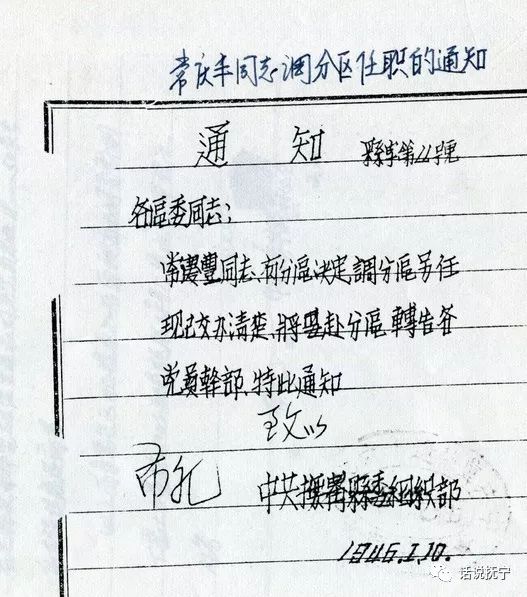 常庆丰同志调分区任职的通知
通知 縣串第22號
各區委同志：
常慶豐同志、有分區决定調分區另任
现已交办清楚、將要赴分區、轉告各
党員幹部、特此通知
致以
布礼
中共撫寧縣委組織部
1946.1.10.
话说抚宁